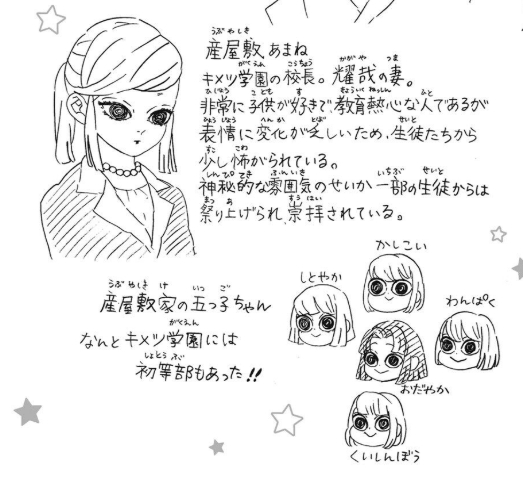 産屋敷あまね
キメツ学園の校長。耀哉の妻。
非常に子供が好きで、教育熱心な人であるが
表情に変化が乏しいため、生徒たちから
少し怖がられている。
神秘的な雰囲気のせいか一部の生徒からは
祭り上げられ、崇拝されている。
産屋敷家の五つ子ちゃん
なんとキメツ学園には
初等部もあった!!
かしこい
しとやか
わんぱく
おだやか
くいしんぼう